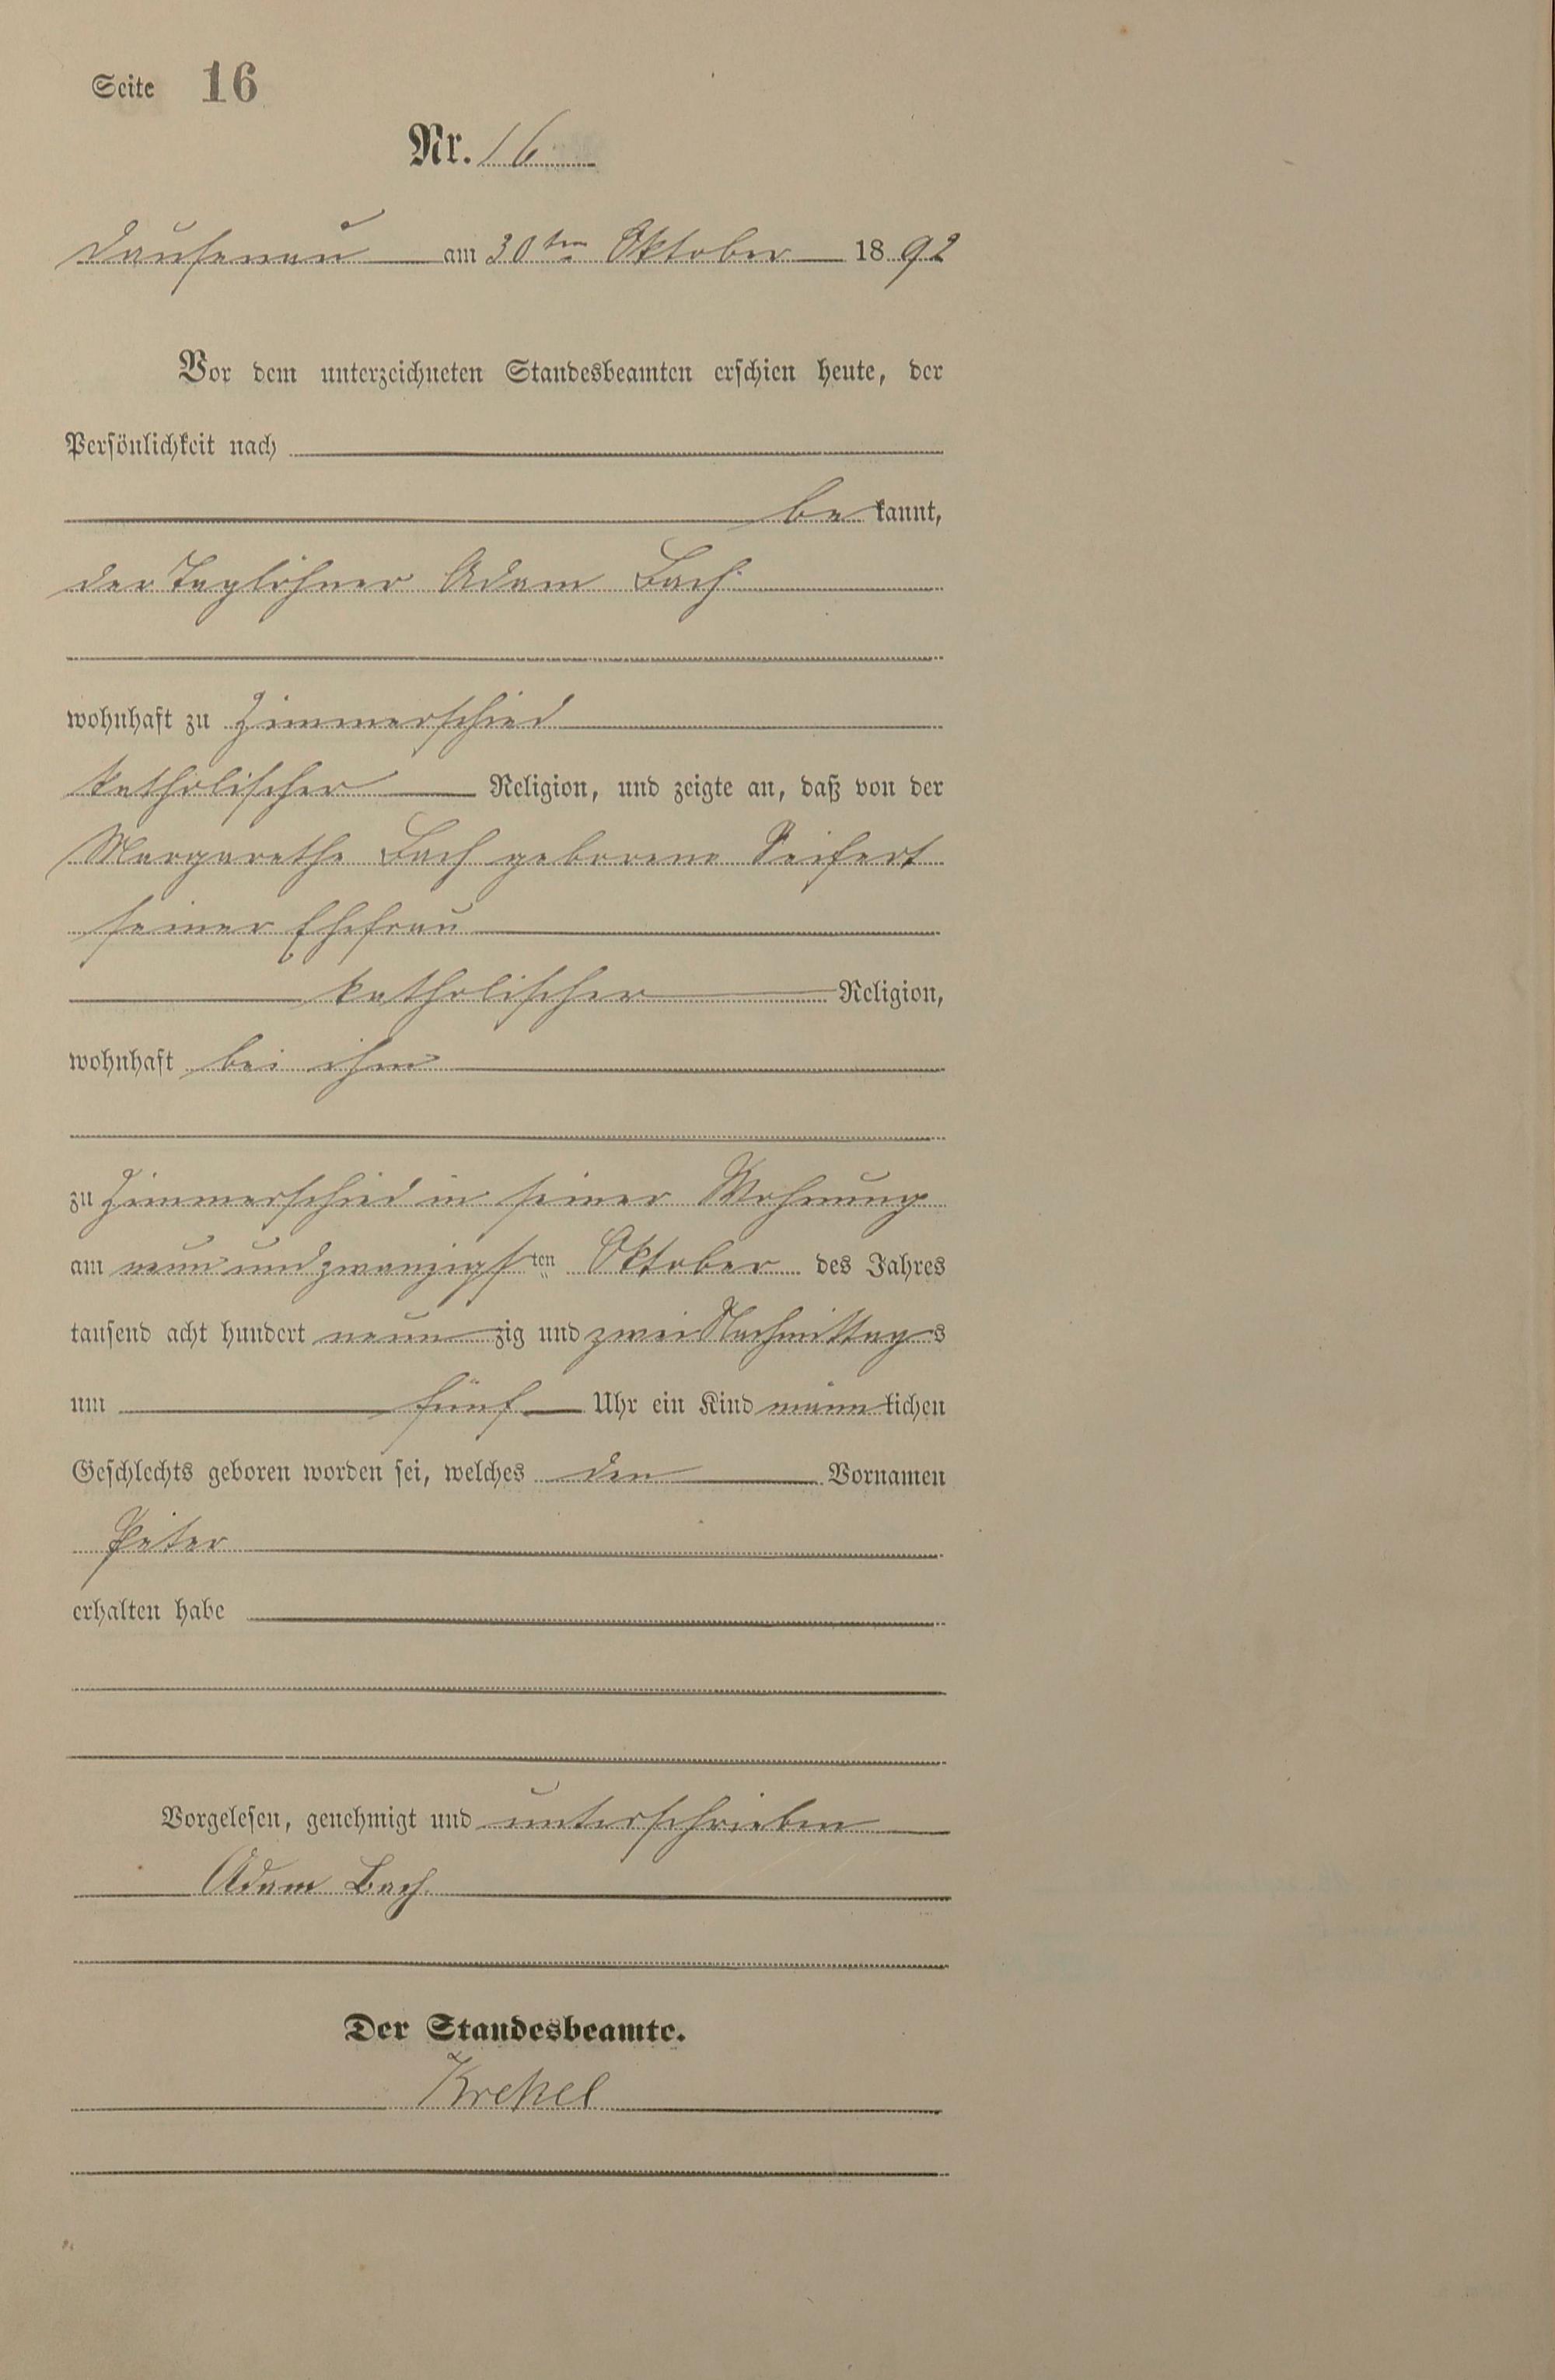 Seite 16
Nr. 16
Dausenau am 30ten Oktober 1892
Vor dem unterzeichneten Standesbeamten erschien heute, der
Persönlichkeit nach
bekannt,
der Taglöhner Adam Bach
wohnhaft zu Zimmerschied
katholischer Religion, und zeigte an, daß von der
Margarethe Bach geborene Seifert
seiner Ehefrau
katholischer Religion,
wohnhaft bei ihm
zu Zimmerschied in seiner Wohnung
am neun und zwanzigsten Oktober des Jahres
tausend acht hundert neunzig und zwei Nachmittags
um fünf Uhr ein Kind männlichen
Geschlechts geboren worden sei, welches den Vornamen
Peter
erhalten habe
Vorgelesen, genehmigt und unterschrieben
Adam Bach.
Der Standesbeamte.
Krekel